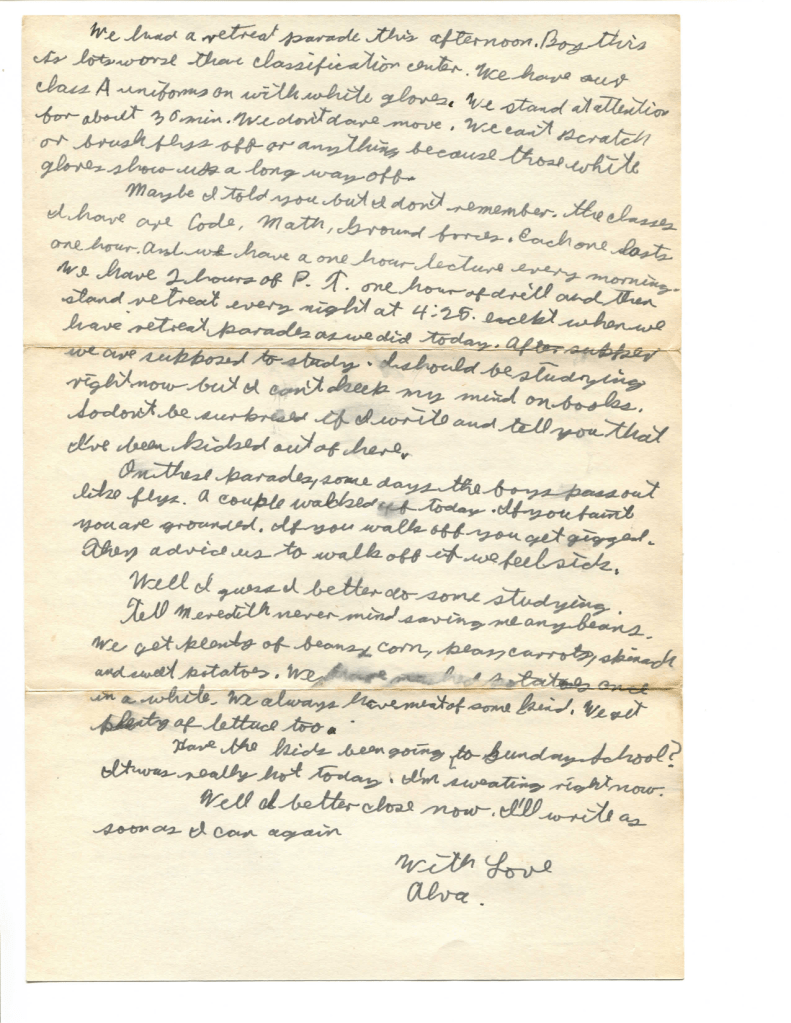 We had a retreat parade this afternoon. Boy this
is lots worse than classification center. We have our
class A uniforms on with white gloves. We stand at attention
for about 30 min. We dont dare move. We cant scratch
or brush flys off or anything because those white
gloves show up a long way off.
Maybe I told you but I don't remember. The classes
I have are Code, Math, Ground forces. Each one lasts
one hour. And we have a one hour lecture every morning.
We have 2 hours of P. T. one hour of drill and then
stand retreat every night at 4:25. except when we
have retreat parades as we did today. After supper
we are supposed to study. I should be studying
right now but I can't keep my mind on books.
So don't be surprised if I write and tell you that
I've been kicked out of here.
On these parades, some days the boys pass out
like flys. A couple walked off today. If you faint
you are grounded. If you walk off you get gigged.
They advice us to walk off if we feel sick.
Well I guess I better do some studying.
Tell Meredith never mind saving me any beans.
We get plenty of beans, corn, peas, carrots, spinach
and sweet potatoes. We have mashed potatoes once
in a while. We always have meat of some kind. We get
plenty of lettuce too.
Have the kids been going to Sunday School?
It was really hot today. I'm sweating right now.
Well I better close now. I'll write as
soon as I can again
With Love
Alva.